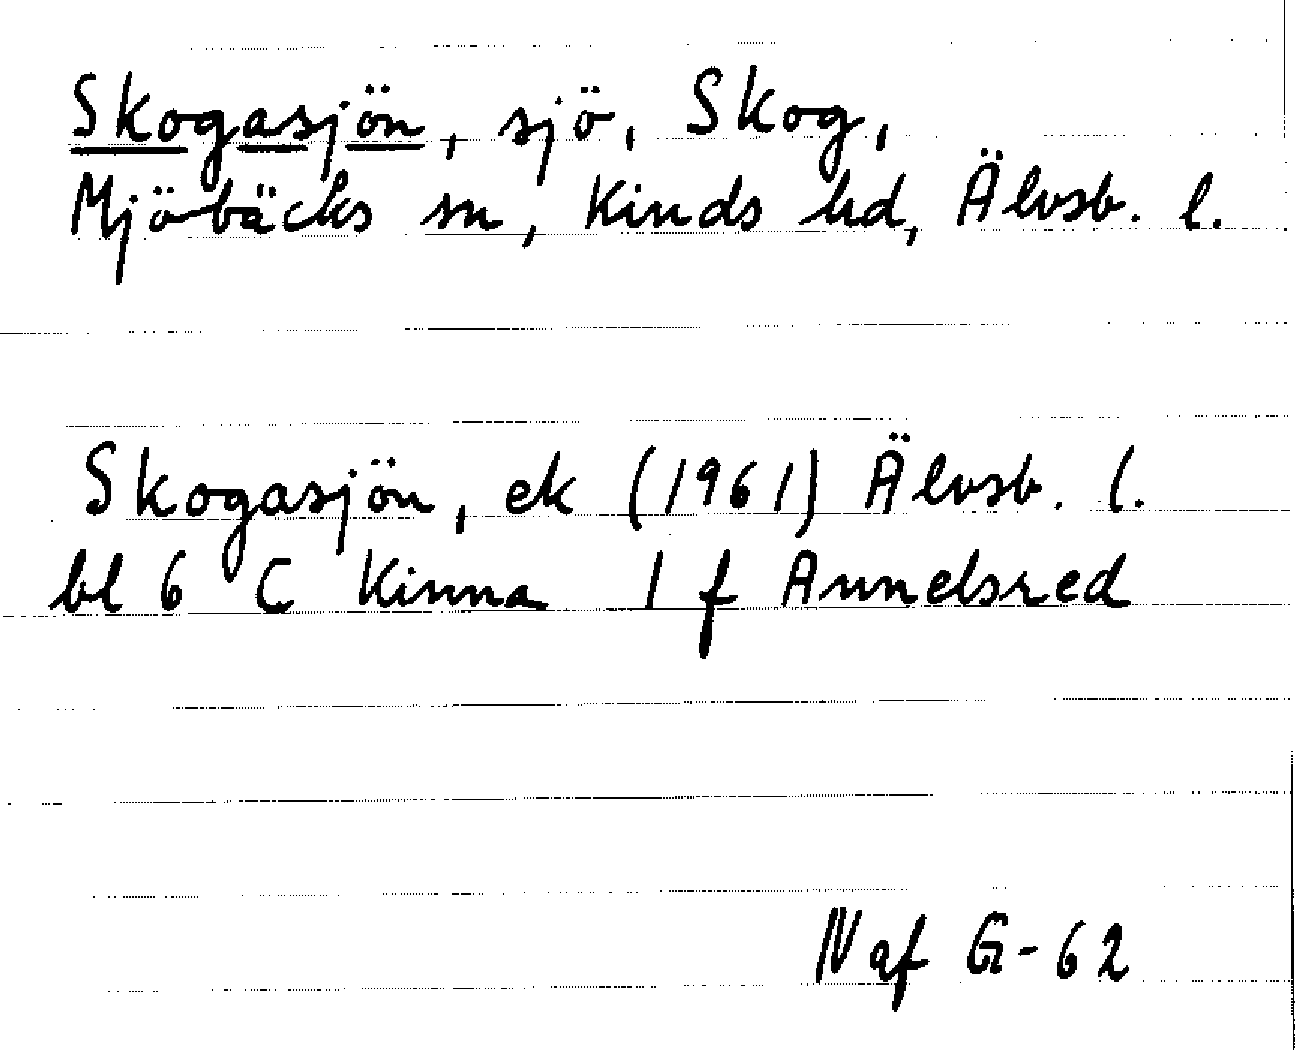 Skogasjön, sjö, Skog,
Mjöbäcks sn, Kinds hd, Älvsb. l.
Skogasjön, ek (1961) Älvsb. l.
bl 6 C Kinna 1 f Annelsred
N af G-62